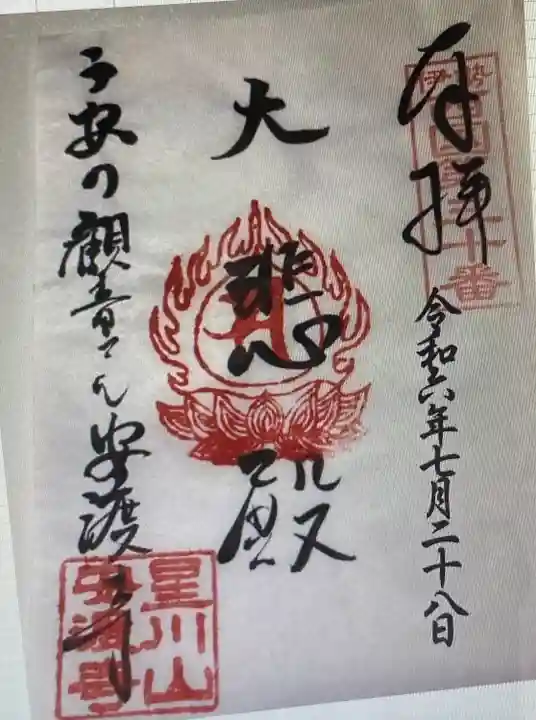 奉拝
令和六年七月二十八日
大悲殿
子安の観音さん安渡寺
星川山
安渡寺